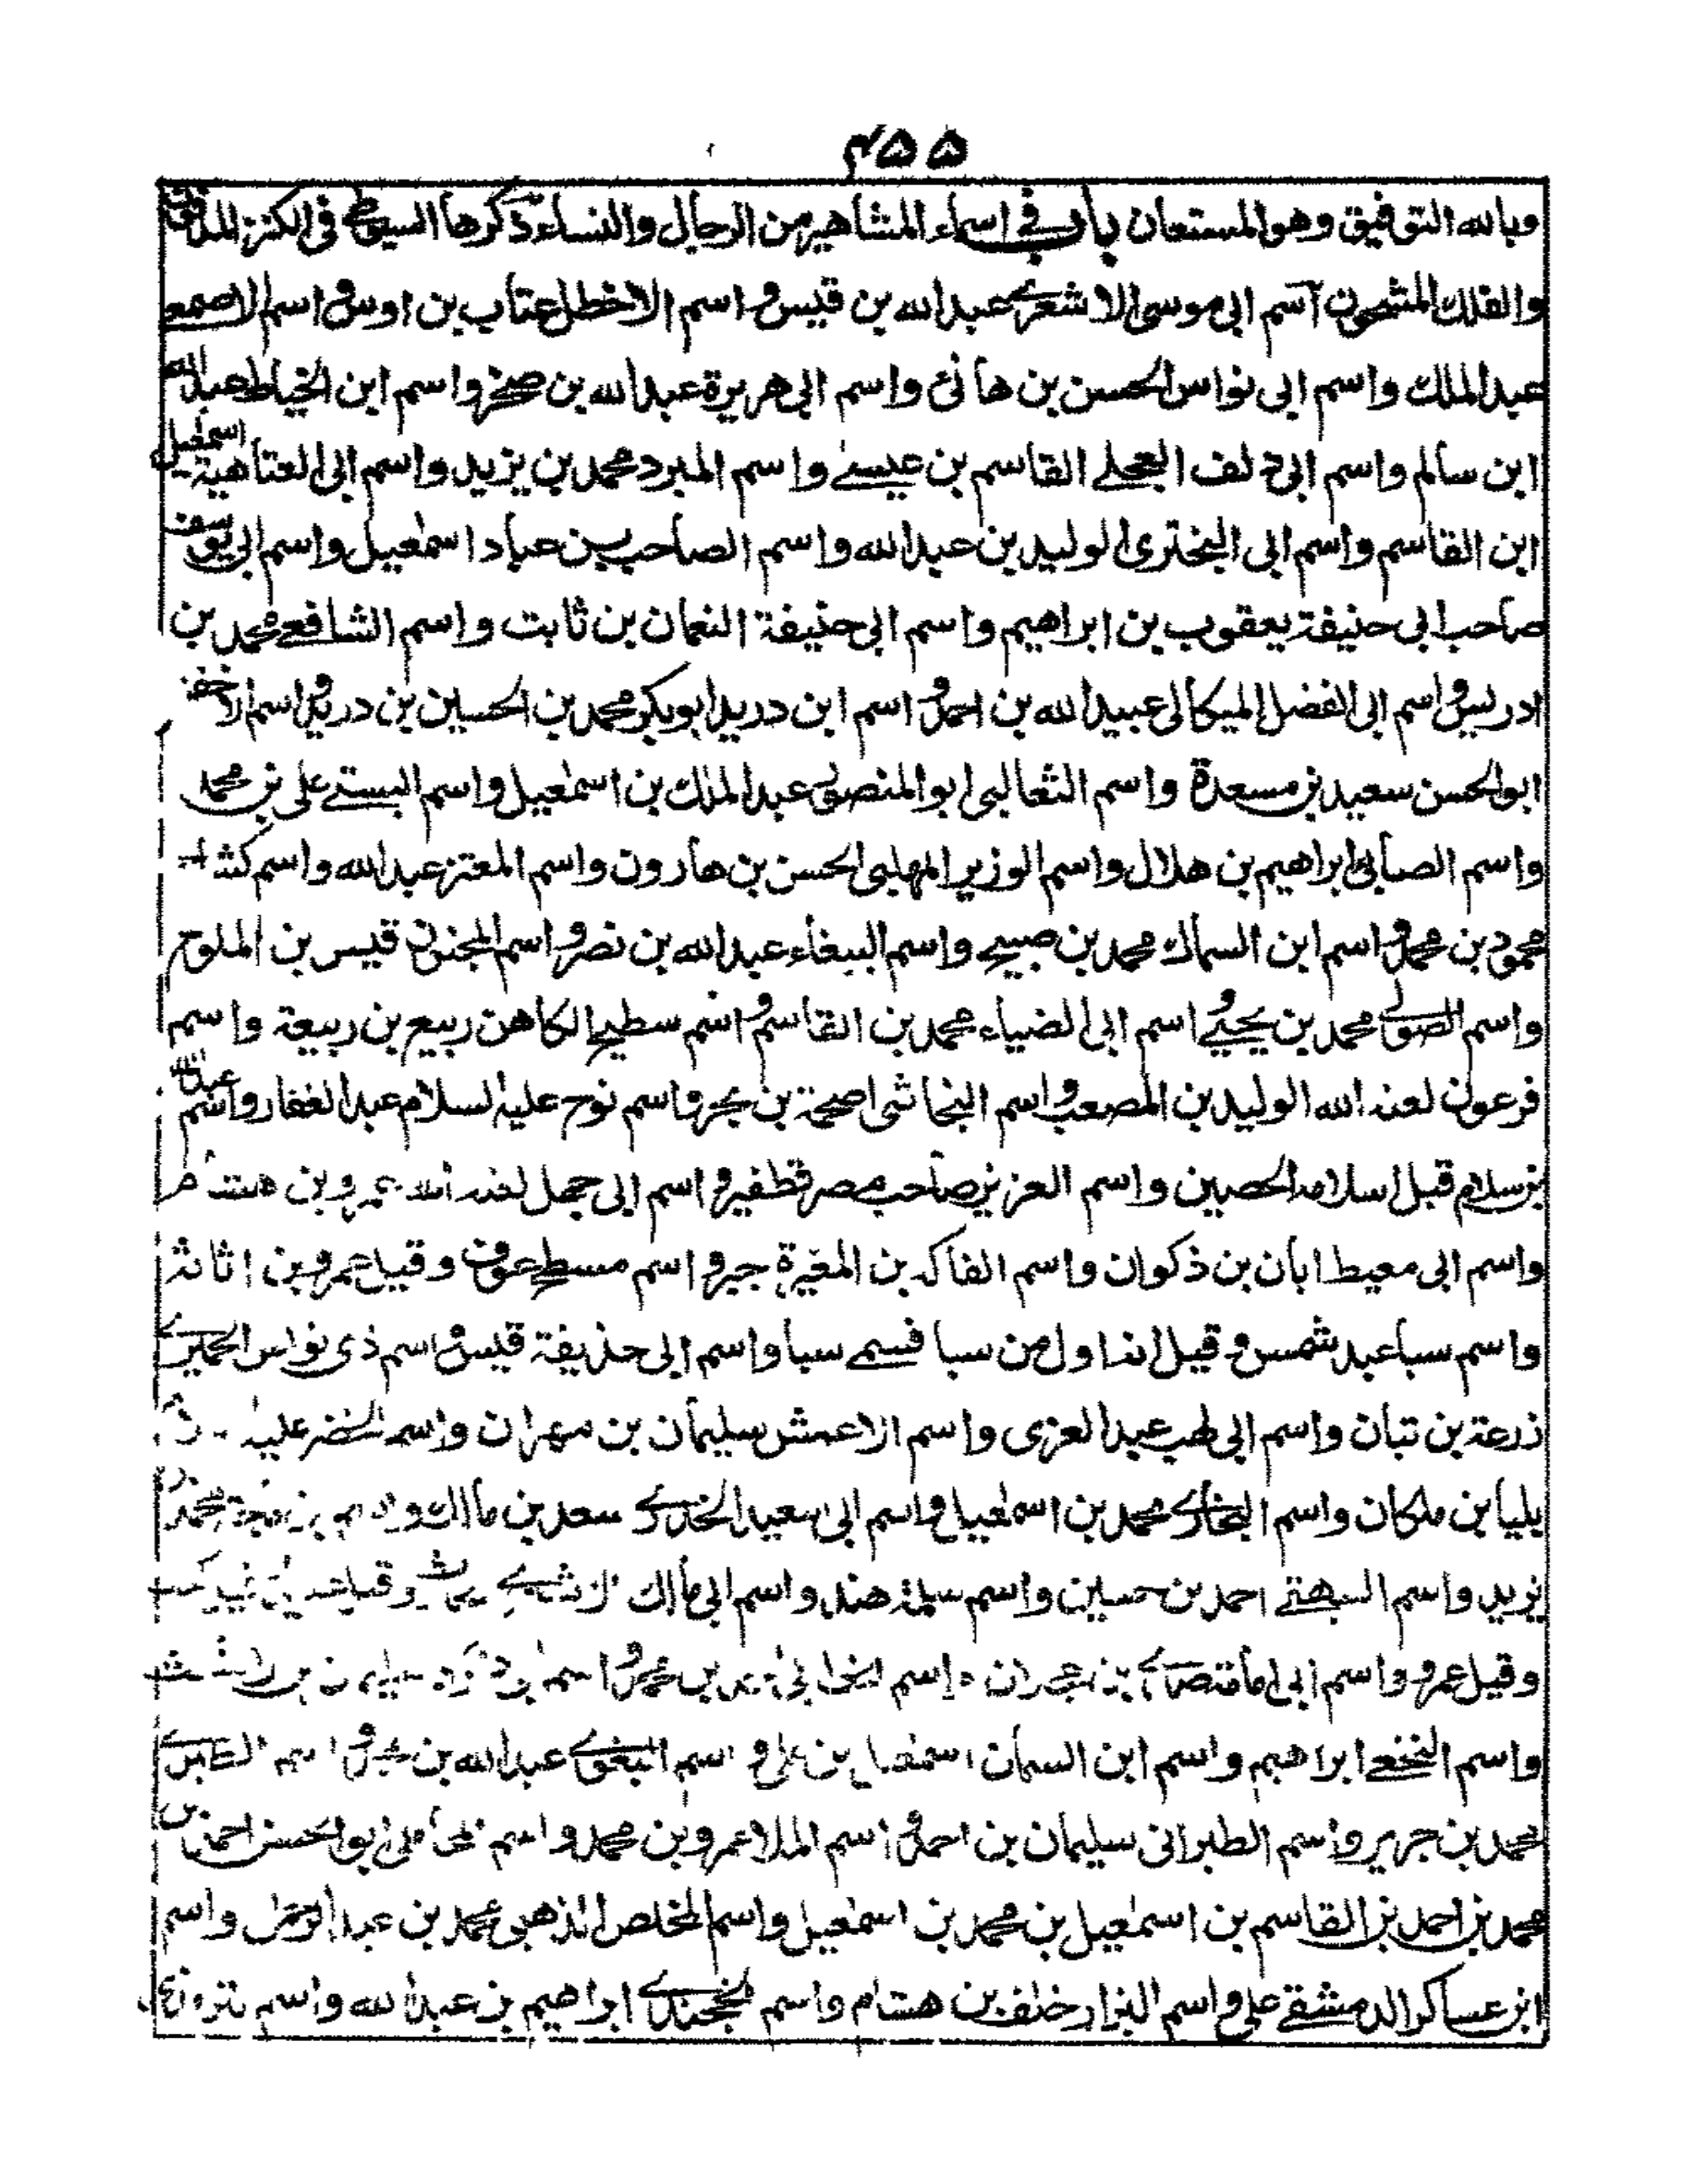 ٤٥٥
وبالله التوفيق وهو المستعان باب في اسماء المشاهير من الرجال والنساء ذكرها السيوطي في الكنز المدفون
والفلك المشحون آسم ابي موسى الاشعري عبدالله بن قيس و اسم الاخطل عتاب بن اوس و اسم الاصمعي
عبدالملك واسم ابى نواس الحسن بن هانئ واسم ابى هريرة عبدالله بن صخر واسم ابن الخياط عبدالله
ابن سالم واسم ابى دلف العجلے القاسم بن عيسے واسم المبرد محمد بن يزيد واسم ابى العتاهية اسمعيل
ابن القاسم واسم ابى البختري الوليد بن عبدالله واسم الصاحب بن عباد اسمعيل واسم ابى يوسف
صاحب ابى حنيفة يعقوب بن ابراهيم واسم ابى حنيفة النعمان بن ثابت واسم الشافعے محمد بن
ادريس و اسم ابى الفضل الميكالى عبيدالله بن احمد و اسم ابن دريد ابوبكر محمد بن الحسين بن دريد و اسم الاخفش
ابوالحسن سعيد بن مسعدة واسم الثعالبى ابو المنصور عبدالملك بن اسمعيل واسم البستے على بن محمد
واسم الصابى ابراهيم بن هلال واسم الوزير المهلبى الحسن بن هارون واسم المعتز عبدالله واسم كشاجم
محمود بن محمد و اسم ابن السماك محمد بن صبيح واسم الببغاء عبدالله بن نصر و اسم المجنون قيس بن الملوح
واسم الصولے محمد بن يحيے و اسم ابى الضياء محمد بن القاسم و اسم سطيح الكاهن ربيع بن ربيعة واسم
فرعون لعنه الله الوليد بن المصعب و اسم النجاشى اصحمة بن بحر و اسم نوح عليه السلام عبدالغفار واسم عبدالله
بن سلام قبل اسلامه الحصين واسم العزيز صاحب مصر قطفير و اسم ابى جهل لعنه الله عمرو بن هشام
واسم ابى معيط ابان بن ذكوان واسم الفاكه بن المغيرة جبر و اسم مسطح عوف وقيل عمرو بن اثاثه
واسم سبا عبد شمس و قيل انه اول من سبا فسمے سبا واسم ابى حذيفة قيس و اسم ذى نواس الحميرے
ذرعة بن تبان واسم ابى لهب عبدالعزى واسم الاعمش سليمان بن مهران واسم الخضر عليه
يليا بن ملكان واسم البخارے محمد بن اسمعيل و اسم ابى سعيد الخدرے سعد بن مالك و اسم بن ماجة محمد بن
يزيد واسم البيهقے احمد بن حسين واسم سلمة هند واسم ابى مالك الاشعرے وقيل
وقيل عمرو واسم ابى امامة صدے بن عجلان واسم الخطابى بن محمد و اسم ابى داؤد سليمان بن الاشعث
واسم النخعے ابراهيم واسم ابن السمان اسمعيل بن على و اسم البغوے عبدالله بن محمد و اسم الطبرے
محمد بن جرير واسم الطبرانى سليمان بن احمد و اسم الملا عمرو بن محمد واسم المحاملى ابوالحسن احمد بن
محمد بن احمد بن القاسم بن اسمعيل بن محمد بن اسمعيل واسم المخلص الذهبى محمد بن عبدالرحمن واسم
ابن عساكر الدمشقے على و اسم البزار خلف بن هشام واسم الخجندے ابراهيم بن عبدالله واسم